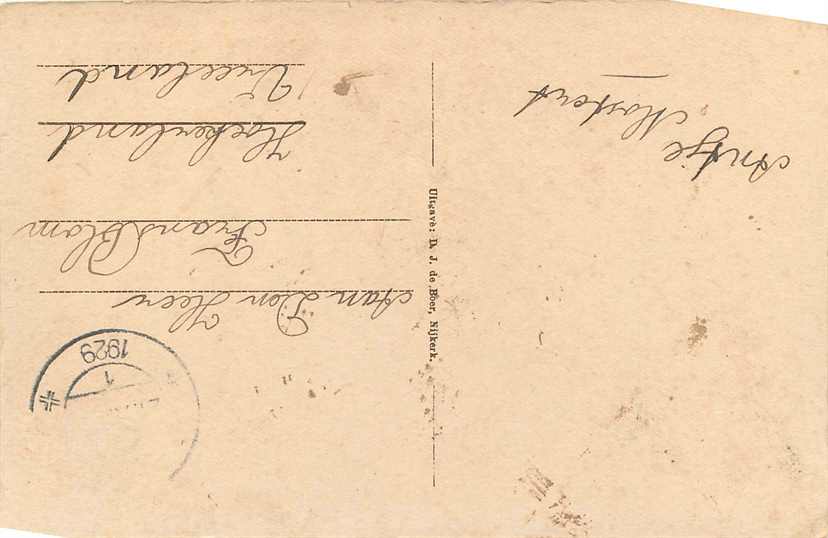 1
1929
Uitgave: D. J. de Boer, Nijkerk.
Aan Den Heer
Frans Blom
Hoekerland
Vreeland
Antje
Mostert